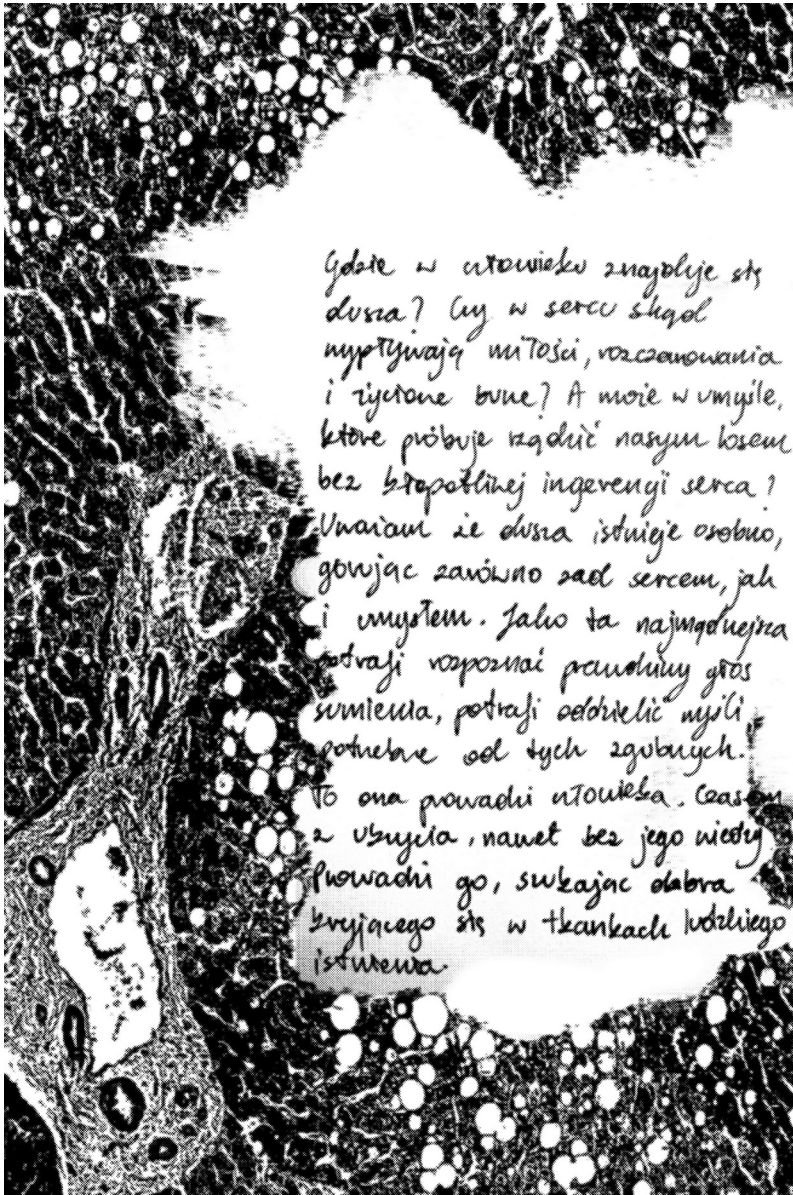 Gdzie w człowieku znajduje się
dusza? Czy w sercu skąd
wypływają miłości, rozczarowania
i życiowe burze? A może w umyśle,
które próbuje rządzić naszym losem
bez kłopotliwej ingerencji serca?
Uważam że dusza istnieje osobno,
górując zarówno nad sercem, jak
i umysłem. Jako ta najmądrzejsza
potrafi rozpoznać prawdziwy głos
sumienia, potrafi oddzielić myśli
potrzebne od tych zgubnych.
To ona prowadzi człowieka. Czasem
z ukrycia, nawet bez jego wiedzy
Prowadzi go, szukając dobra
kryjącego się w tkankach ludzkiego
istnienia.